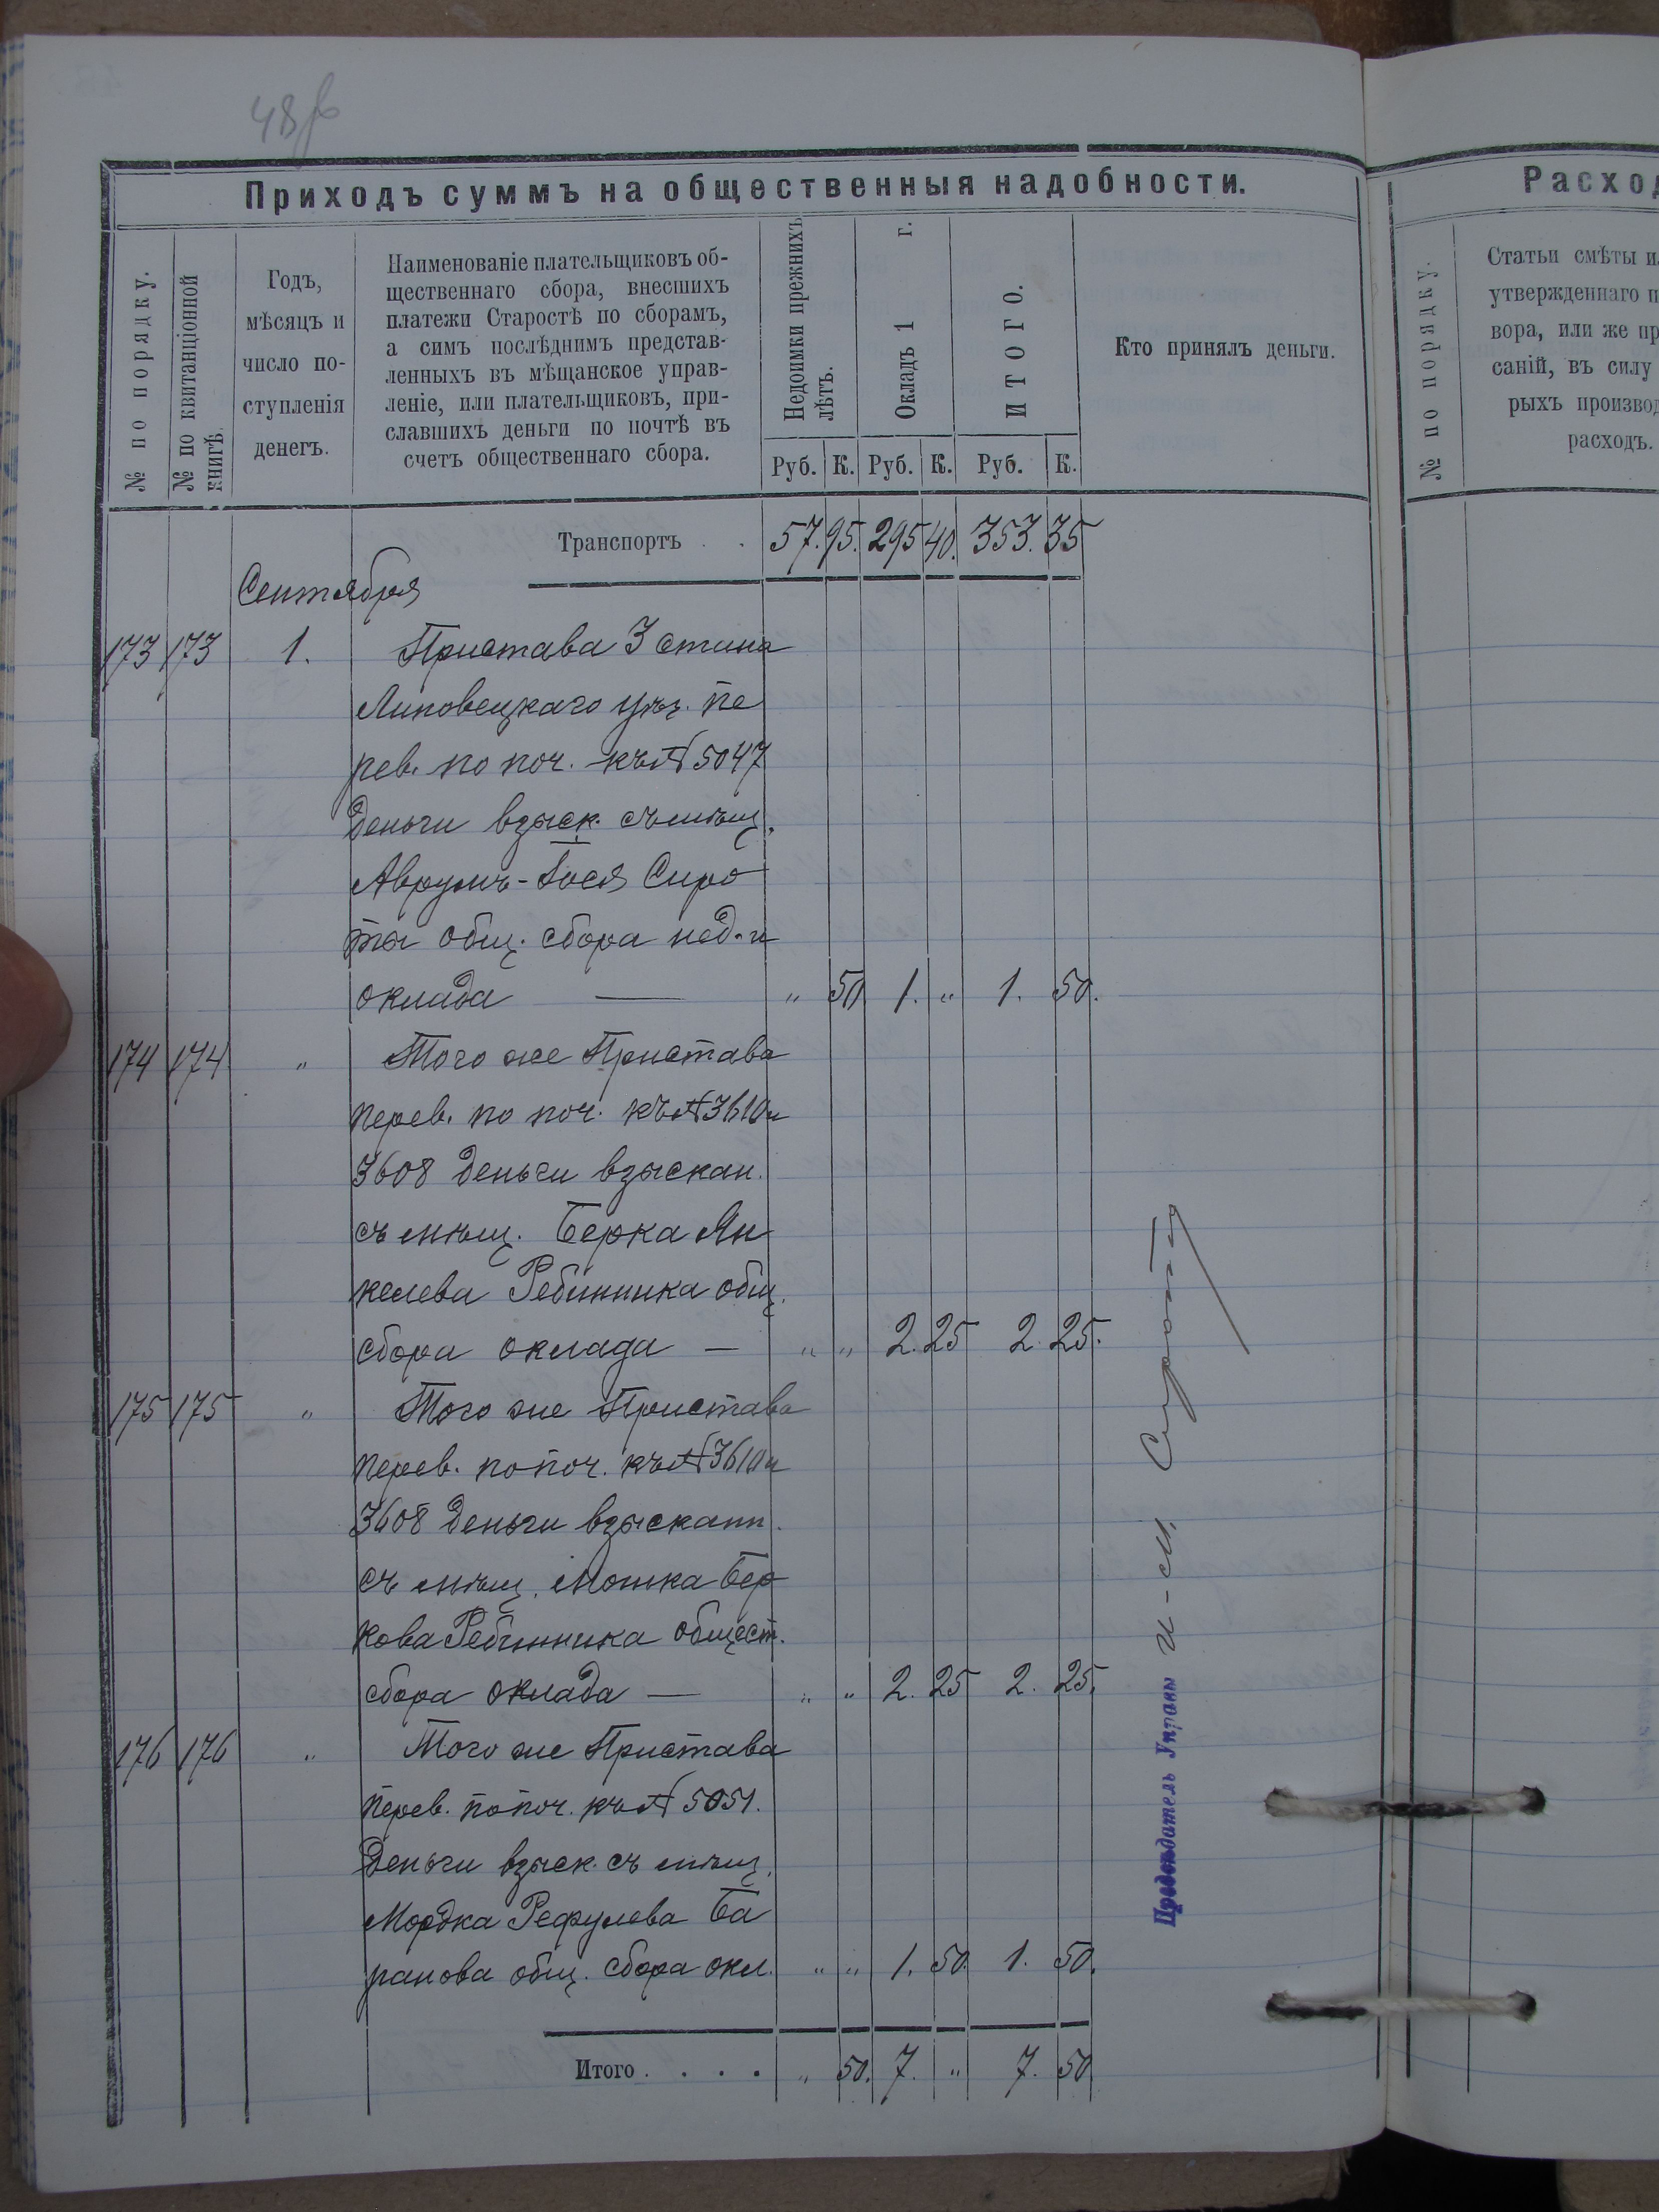 48
Приходъ суммъ на общественныя надобности.
№ по порядку.
№ по квитанціонной книгѣ.
Годъ,
мѣсяцъ и
число по-
ступленія
денегъ.
Наименованіе плательщиковъ об-
щественнаго сбора, внесшихъ
платежи Старостѣ по сборамъ,
а симъ послѣднимъ представ-
ленныхъ въ мѣщанское управ-
леніе, или плательщиковъ, при-
славшихъ деньги по почтѣ въ
счетъ общественнаго сбора.
Недоимки прежнихъ
лѣтъ.
Окладъ 1 г.
ИТОГО.
Кто принялъ деньги.
Руб. К. Руб. К. Руб. К.
Транспортъ . . 57. 95. 295 40. 353. 35
Сентября
173 173 1. Пристава 3 стана
Липовецкаго уѣз. пе
рев. по поч. къ № 5047
деньги взыск. съ мѣщ.
Аврумъ-Іося Сиро
ты общ. сбора нед. и
оклада — " 50 1. " 1. 50.
174 174 " Того же Пристава
перев. по поч. къ № 3610 и
3608 деньги взыскан.
съ мѣщ. Берка Ян
келева Ребинника общ.
сбора оклада — " " 2. 25 2. 25.
175 175 " Того же Пристава
перев. по поч. къ № 3610 и
3608 деньги взысканн.
съ мѣщ. Мошка Бер
кова Ребинника общест.
сбора оклада — " " 2. 25 2. 25.
176 176 " Того же Пристава
перев. по поч. къ № 5051.
деньги взыск. съ мѣщ.
Мордка Рефулева Ба
ранова общ. сбора окл. " " 1. 50. 1. 50.
Итого . . . . " 50. 7. " 7. 50
Предсѣдатель Управы И-М. Сирота
Расход
№ по порядку.
Статьи смѣты и
утвержденнаго п
вора, или же пр
саній, въ силу
рыхъ производ
расходъ.